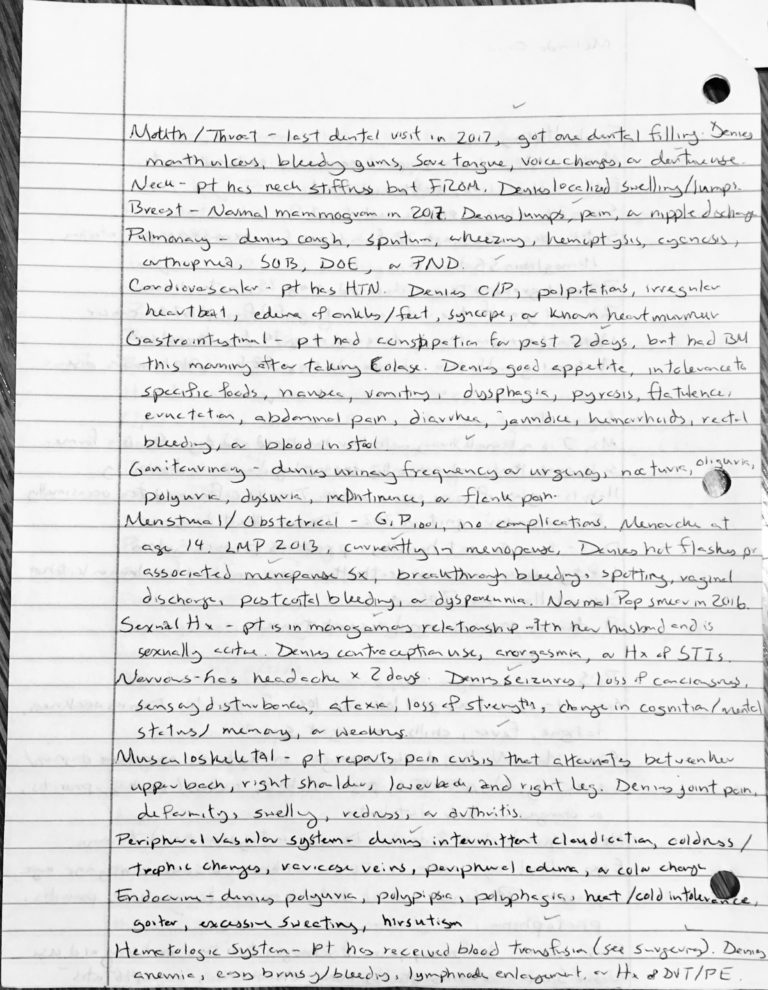 Mouth/Throat - last dental visit in 2017, got one dental filling. Denies
mouth ulcers, bleedy gums, sore tongue, voice changes, or denture use.
Neck - pt has neck stiffness but FROM. Denies localized swelling/lumps.
Breast - Normal mammogram in 2017. Denies lumps, pain, or nipple discharge
Pulmonary - denies cough, sputum, wheezing, hemiptysis, cyanosis,
orthopnea, SOB, DOE, or PND.
Cardiovascular - pt has HTN. Denies C/P, palpitations, irregular
heartbeat, edema of ankles/feet, syncope, or known heart murmur
Gastrointestinal - pt had constipation for past 2 days, but had BM
this morning after taking Colase. Denies good appetite, intolerance to
specific foods, nausea, vomiting, dysphagia, pyrosis, flatulence,
eructation, abdominal pain, diarrhea, jaundice, hemorrhoids, rectal
bleeding, or blood in stool
Genitourinary - denies urinary frequency or urgency, nocturia, oliguria,
polyuria, dysuria, incontinence, or flank pain.
Menstrual/Obstetrical - G1P1001, no complications. Menarche at
age 14, LMP 2013, currently in menopause. Denies hot flashes or
associated menopause Sx, breakthrough bleeding, spotting, vaginal
discharge, postcoital bleeding, or dyspareunia. Normal Pap smear in 2016.
Sexual Hx - pt is in monogamous relationship with her husband and is
sexually active. Denies contraception use, anorgasmia, or Hx of STIs.
Nervous - has headache x 2 days. Denies seizures, loss of conciousness,
sensory disturbances, ataxia, loss of strength, change in cognition/mental
status/memory, or weakness.
Musculoskeletal - pt reports pain crisis that alternates between her
upper back, right shoulder, lower back, and right leg. Denies joint pain,
deformity, swelling, redness, or arthritis.
Peripheral Vascular System - denies intermittent claudication, coldness/
trophic changes, varicose veins, peripheral edema, or color change
Endocrine - denies polyuria, polypipsia, polyphagia, heat/cold intolerance,
goiter, excessive sweating, hirsutism
Hematologic System - pt has received blood transfusion (see surgeries). Denies
anemia, easy bruising/bleeding, lymphnode enlargement, or Hx of DVT/PE.